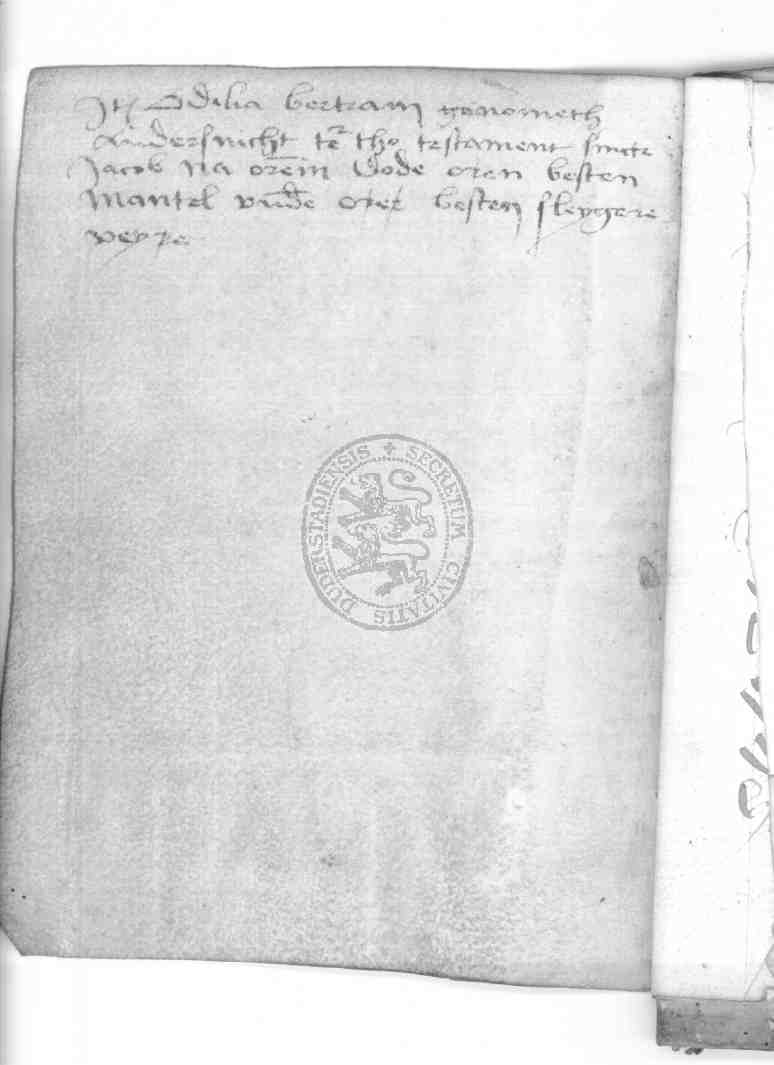 Jt Odilia bertram genometh
Andersnicht te tho testament sincte
Jacob na orem Dode oren besten
Mantel vnde orer besten sleygere
SECRETUM CIVITATIS DUDERSTADIENSIS